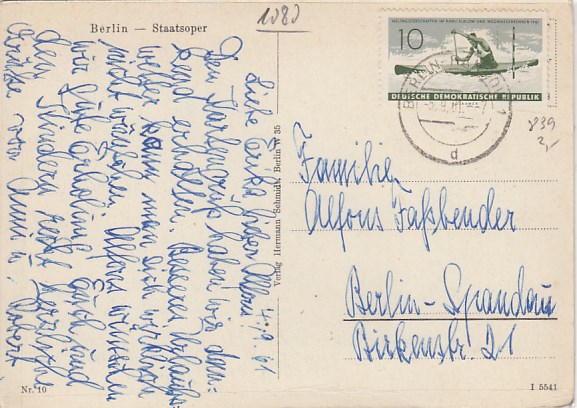 Berlin — Staatsoper
1080
4.9.61
Liebe Erika, lieber Alfons
Den Kartengruß haben wir dan-
kend erhalten. Besseres Urlaubs-
wetter kann man sich wirklich
nicht wünschen. Alfons wünschen
wir gute Erholung. Euch und
den Kindern recht herzliche
Grüße von Anni u. Robert
Nr. 10
Verlag Hermann Schmidt, Berlin W 35
WELTMEISTERSCHAFTEN IM KANU-SLALOM UND WILDWASSERRENNEN 1961
10
DEUTSCHE DEMOKRATISCHE REPUBLIK
BERLIN
d
839
2,-
Familie
Alfons Faßbender
Berlin-Spandau
Birkenstr. 21
I 5541